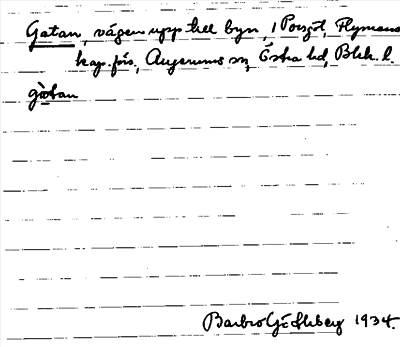 Gatan, vägen upp till byn, i Porsgöl, Flymens
kap. förs., Augerums sn, Östra hd, Blek. l.
gàtan
Barbro Götlsberg 1934.